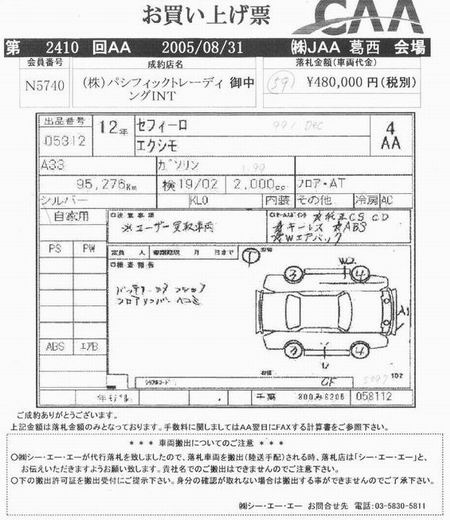 お買い上げ票
CAA
第 2410 回AA 2005/08/31 ㈱JAA 葛西 会場
会員番号 成約店名 落札金額(車両代金)
N5740 (株)パシフィックトレーディ 御中
ングINT
59 ¥480,000円(税別)
出品番号 12年 セフィーロ 4
05312 エクシモ AA
A33 ガソリン
95,276Km 検 19/02 2,000cc フロア・AT
シルバー KL0 内装 その他 冷房 AC
自家用 注意事項
※ユーザー買取車両
☆純正CS CD
☆キーレス ☆ABS
☆Wエアバッグ
PS PW
定員 人 月 日まで
検査報告
ABS エアB
3 4
3 4
年モデル 千葉 058112
ご成約ありがとうございます。
上記金額は落札金額のみとなっております。手数料に関しましてはAA翌日にFAXする計算書をご参照下さい。
＊＊＊ 車両搬出についてのご注意 ＊＊＊
○㈱シー・エー・エーが代行落札を致しましたので、落札車両を搬出(陸送手配)される時、落札店は「シー・エー・エー」と、
お伝えいただきますようお願い致します。貴社名でのご搬出はできませんのでご注意下さい。
○下の搬出許可証を搬出受付にご提示下さい。身分の確認が取れない場合は搬出する事ができませんのでご了承下さい。
㈱シー・エー・エー お問合せ先 電話:03-5830-5811